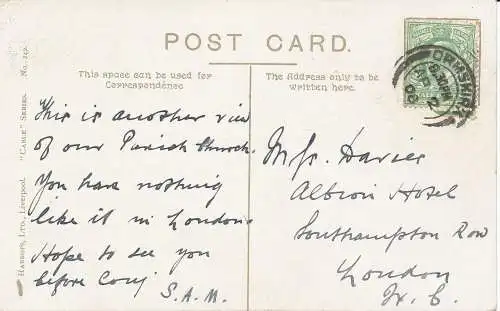 POST CARD.
This space can be used for
Correspondence
The Address only to be
written here.
This is another view
of our Parish Church.
You have nothing
like it in London
Hope to see you
before
S.A.M.
Davies
Albion Hotel
Southampton Row
London
W.C.
ORMSKIRK
HARROP, LTD., LIVERPOOL. "CABLE" SERIES. No.